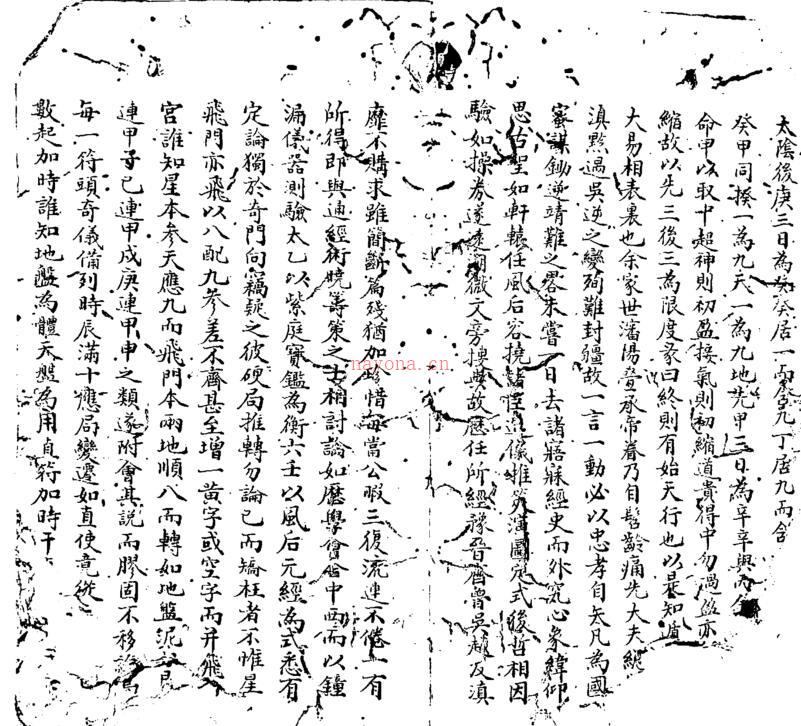 太陰後庚三日為癸癸居一而含九丁居九而含
癸甲同揆一為九天一為九地先甲三日為辛辛與丙合
命甲以取中超神則初盈接氣則初縮道貴得中勿過盈亦
縮故以先三後三為限度彖曰終則有始天行也以是知遁
大易相表裏也余家世瀋陽疊承帝眷乃自髫齡痛先大夫總
滇黔遇吳逆之變殉難封疆故一言一動必以忠孝自矢凡為國
審謀鋤逆靖難之畧未嘗一日去諸寤寐經史而外究心象緯仰
思古聖如軒轅任風后容撓諸臣造儀推筴演圖定式後哲相因
驗如操券遂遠溯微文旁摭典故歷任所經豫晉齊魯吳越及滇
靡不購求雖簡斷篇殘猶加珍惜每當公暇三復流連不倦一有
所得即與通經術曉籌策之士相討論如曆學會合中西而以鐘
漏儀器測驗太乙以紫庭寶鑑為衡六壬以風后元經為式悉有
定論獨於奇門向竊疑之彼硬局推轉勿論已而矯枉者不惟星
飛門亦飛以八配九參差不齊甚至增一黃字或空字而并飛入
宮誰知星本參天應九而飛門本兩地順八而轉如地盤泥
連甲子己連甲戌庚連甲申之類遂附會其說而膠固不移
每一符頭奇儀備列時辰滿十應局變遷如直使竟從
數起加時誰知地盤為體天盤為用直符加時干
nayona.cn